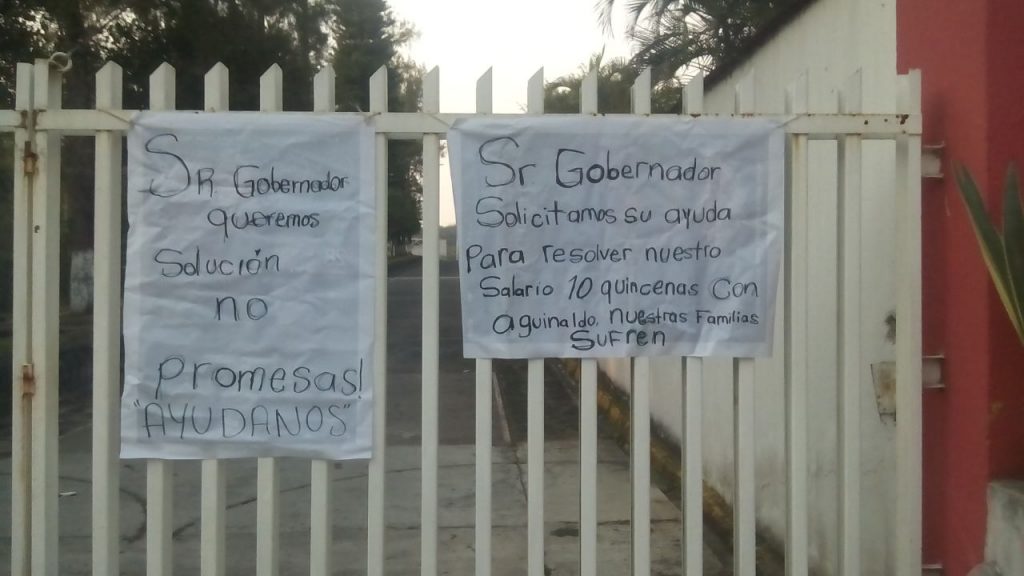 SR Gobernador
queremos
Solución
no
Promesas!
"AYUDANOS"
Sr Gobernador
Solicitamos su ayuda
Para resolver nuestro
Salario 10 quincenas con
aguinaldo, nuestras Familias
Sufren